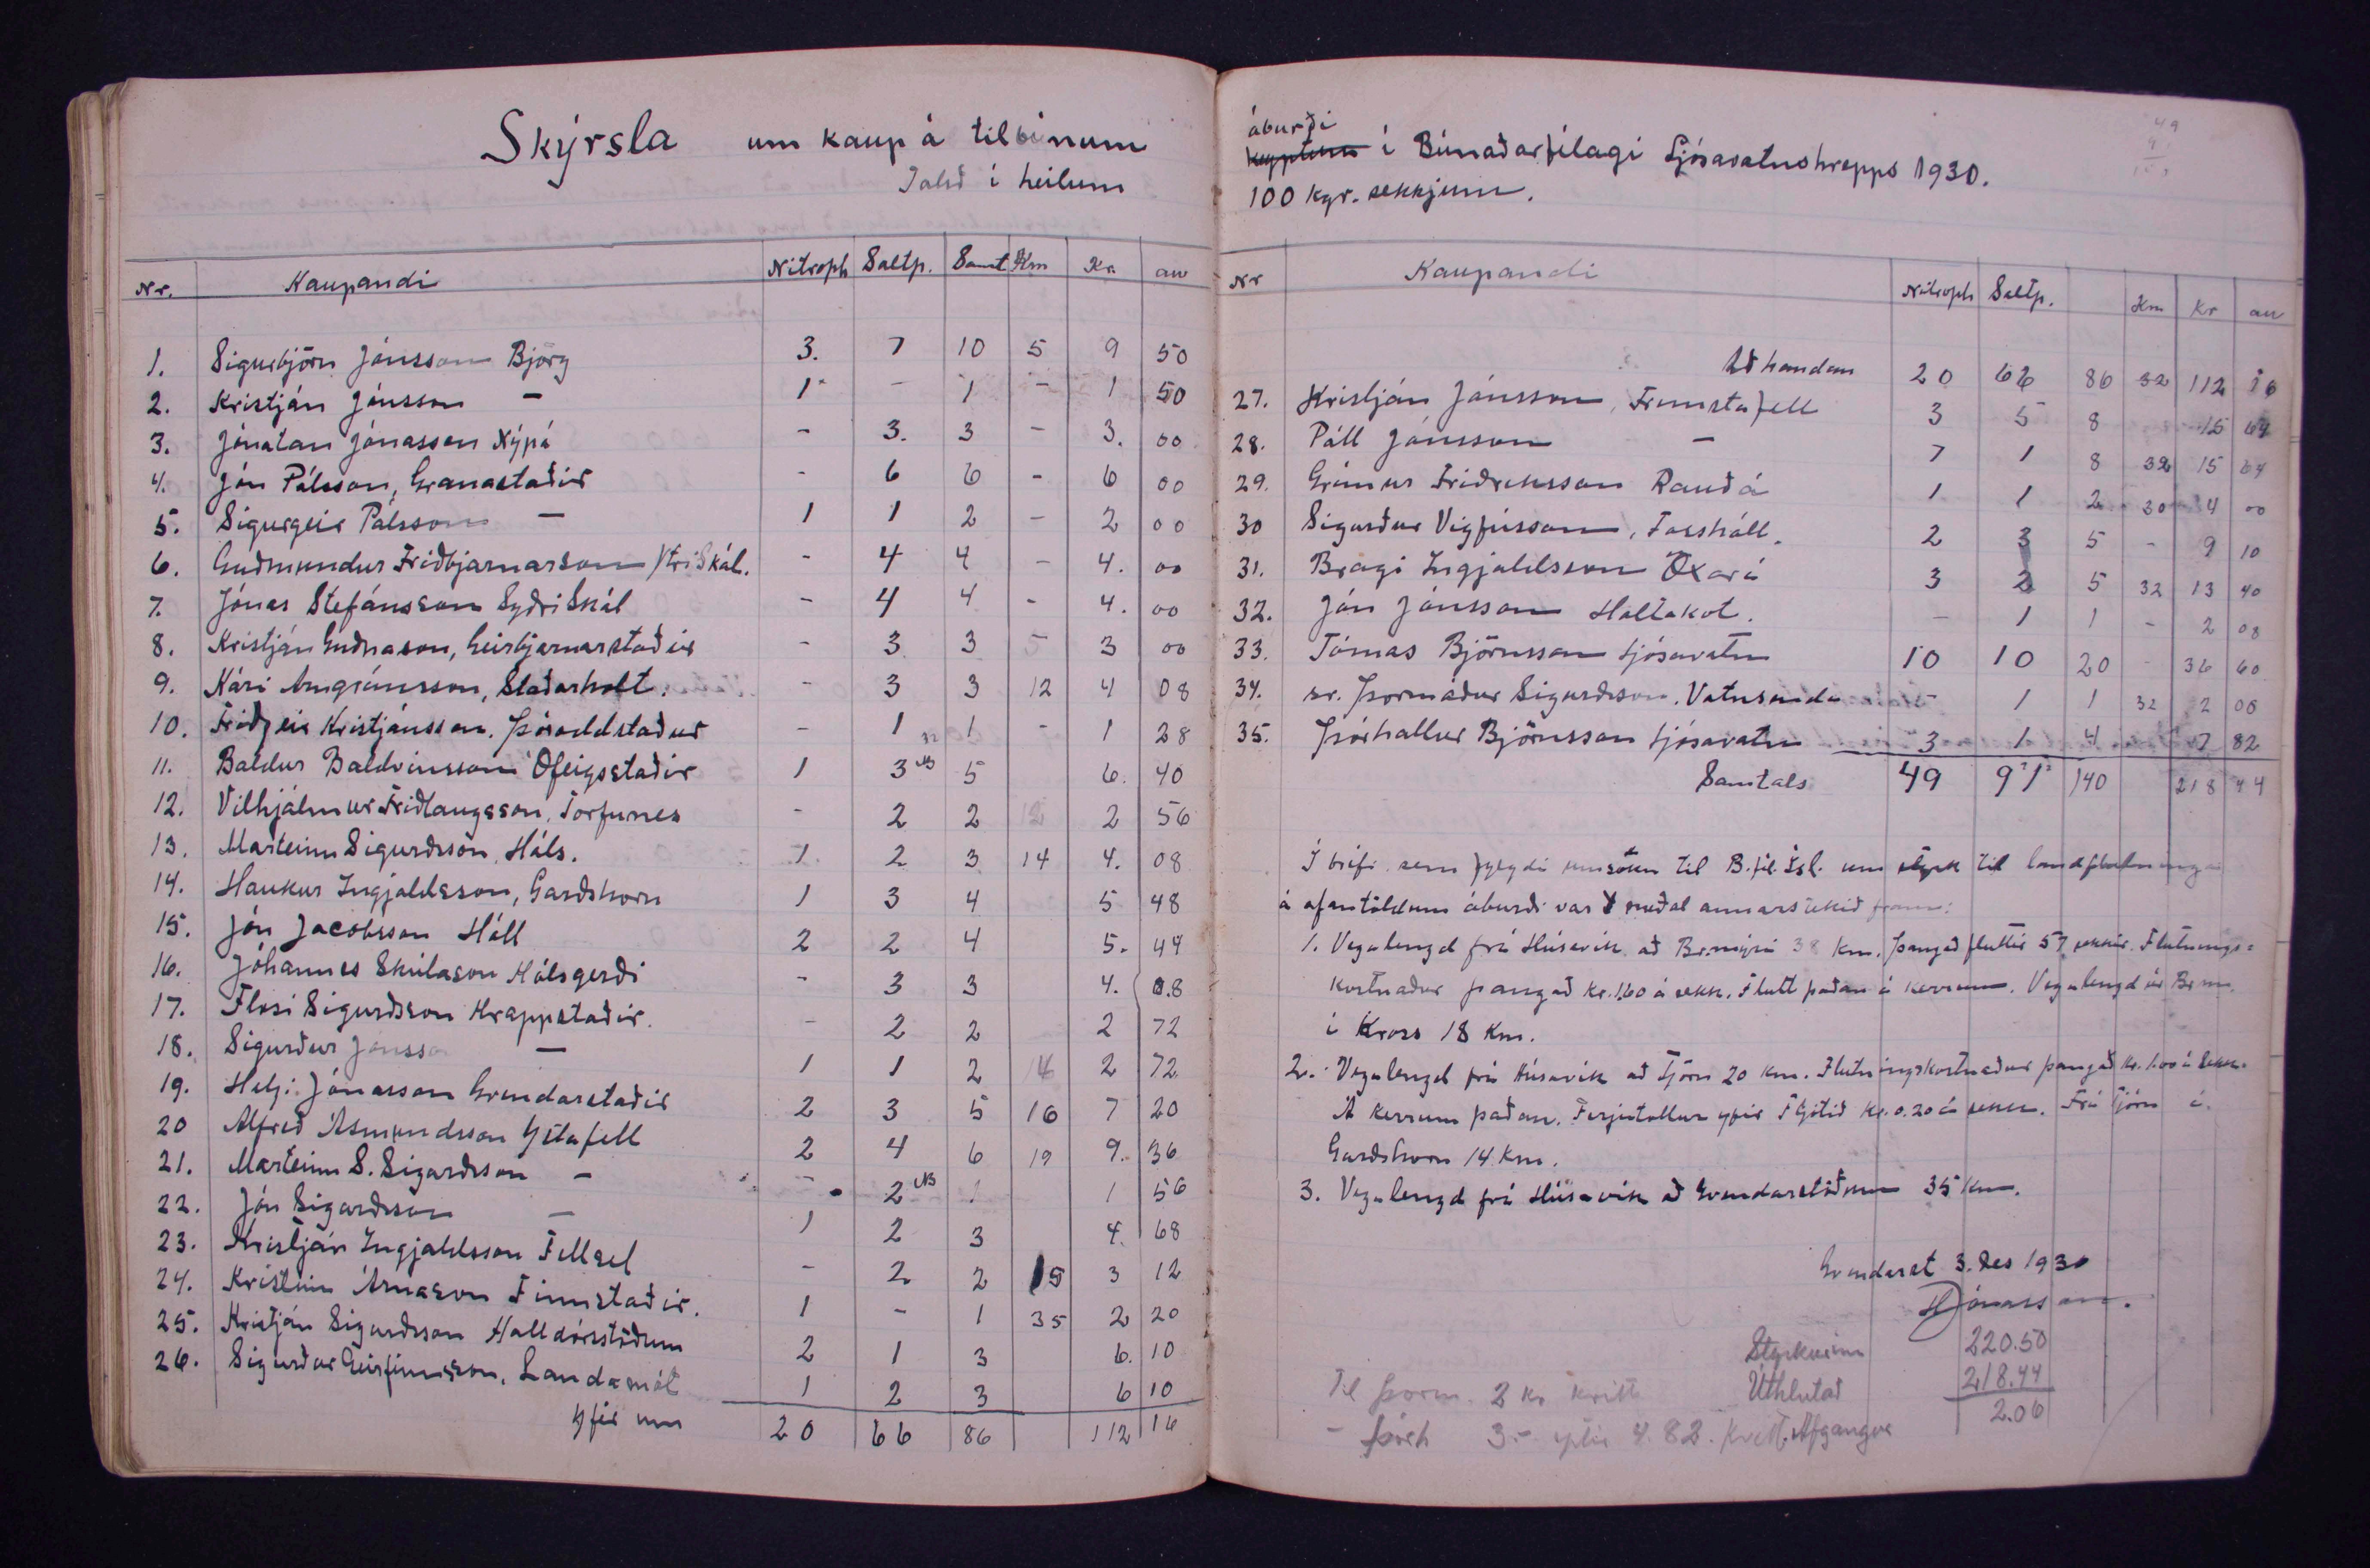 Skýrsla um kaup á tilbúnum
Talið í heilum
Nr. Kaupandi Nitroph Saltp. Samt Km Kr. au
1. Sigurbjörn Jónsson Björg 3. 7 10 5 9 50
2. Kristján Jónsson – 1 – 1 – 1 50
3. Jónatan Jónasson Nýpá – 3. 3 – 3. 00
4. Jón Pálsson, Granastaðir - 6 6 - 6 00
5. Sigurgeir Pálsson – 1 1 2 – 2 00
6. Guðmundur Friðbjarnarson Ytri Skál. - 4 4 – 4. 00
7. Jónas Stefánsson Syðri Skál - 4 4 - 4. 00
8. Kristján Guðnason, Geirbjarnarstaðir - 3 3 5 3 00
9. Kári Arngrímsson, Staðarholt. - 3 3 12 4 08
10. Friðgeir Kristjánsson. Þóroddstaður – 1 1 - 1 28
11. Baldur Baldvinsson Ófeigsstaðir 1 3 NB 5 6. 40
12. Vilhjálmur Friðlaugsson, Torfunes - 2 2 12 2 56
13. Marteinn Sigurðsson, Háls. 1 2 3 14 4. 08
14. Haukur Ingjaldsson, Garðshorn 1 3 4 5 48
15. Jón Jacobsson Háll 2 2 4 5. 44
16. Jóhannes Skúlason Hálsgerði - 3 3 4. 0.8
17. Flosi Sigurðsson Hrappstaðir. – 2 2 2 72
18. Sigurður Jónsso – 1 1 2 14 2 72
19. Helgi Jónasson Grendarstaðir 2 3 5 16 7 20
20 Alfreð Ásmundsson Ystafell 2 4 6 19 9. 36
21. Marteinn S. Sigurðsson – - 2 NB 1 1 56
22. Jón Sigurðsson – 1 2 3 4. 68
23. Kristján Ingjaldsson Fellsel - 2 2 15 3 12
24. Kristinn Árnason Finnstaðir. 1 - 1 35 2 20
25. Kristján Sigurðsson Halldórsstöðum 2 1 3 6. 10
26. Sigurður Geirfinnsson, Landamót 1 2 3 6 10
Yfir um 20 66 86 112 16
áburði
keyptum í Búnaðarfélagi Ljósavatnshrepps 1930.
100 kgr. sekkjum.
Nr Kaupandi Nitroph Saltp. Km Kr au
Að handan 20 66 86 32 112 16
27. Kristján Jónsson, Fremstafell 3 5 8 15 64
28. Páll Jónsson – 7 1 8 32 15 64
29. Grímur Friðriksson Rauðá 1 1 2 30 4 00
30 Sigurður Vigfússon, Fosshóll. 2 3 5 - 9 10
31. Bragi Ingjaldsson Öxará 3 2 5 32 13 40
32. Jón Jónsson Holtakot. – 1 1 - 2 08
33. Tómas Björnsson Ljósavatn 10 10 20 - 36 60
34. sr. Þormóður Sigurðsson. Vatnsenda - 1 1 32 2 08
35. Þórhallur Björnsson Ljósavatn 3 1 4 7 82
Samtals 49 91 140 218 44
Í bréfi sem fylgdi umsókn til B.fél. Ísl. um styrk til landflutninga
á afantöldum áburði var meðal annars tekið fram:
1. Vegalengd frá Húsavík að Br.mýri 38 km. Þangað fluttir 57 sekkir. Flutnings=
kostnaður þangað kr. 1.60 á sekk. Flutt þaðan á kerrum. Vegalengd úr Br.m.
í Kross 18 Km.
2. Vegalengd frá Húsavík að Tjörn 20 km. Flutningskostnaður þangað kr. 1.00 á sekk.
Á kerrum þaðan. Ferjutollur yfir Fljótið kr. 0.20 á sekk. Frá Tjörn í
Garðshorn 14 Km.
3. Vegalengd frá Húsavík að Grendarstöðum 35 km.
Grendarst 3. Des 1930
HJónasson.
Styrkurinn 220.50
Úthlutað 218.44
Til Þorm. 2 kr kvitt
2.06
- Þórh 3.- eptir 4.82. Kvitt. Afgangur